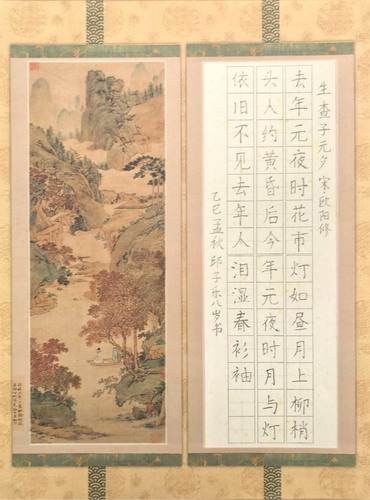 生查子元夕 欧阳修
去年元夜时花市灯如昼月上柳梢
头人约黄昏后今年元夜时月与灯
依旧不见去年人泪湿春衫袖
乙巳孟秋邱子乐八岁书